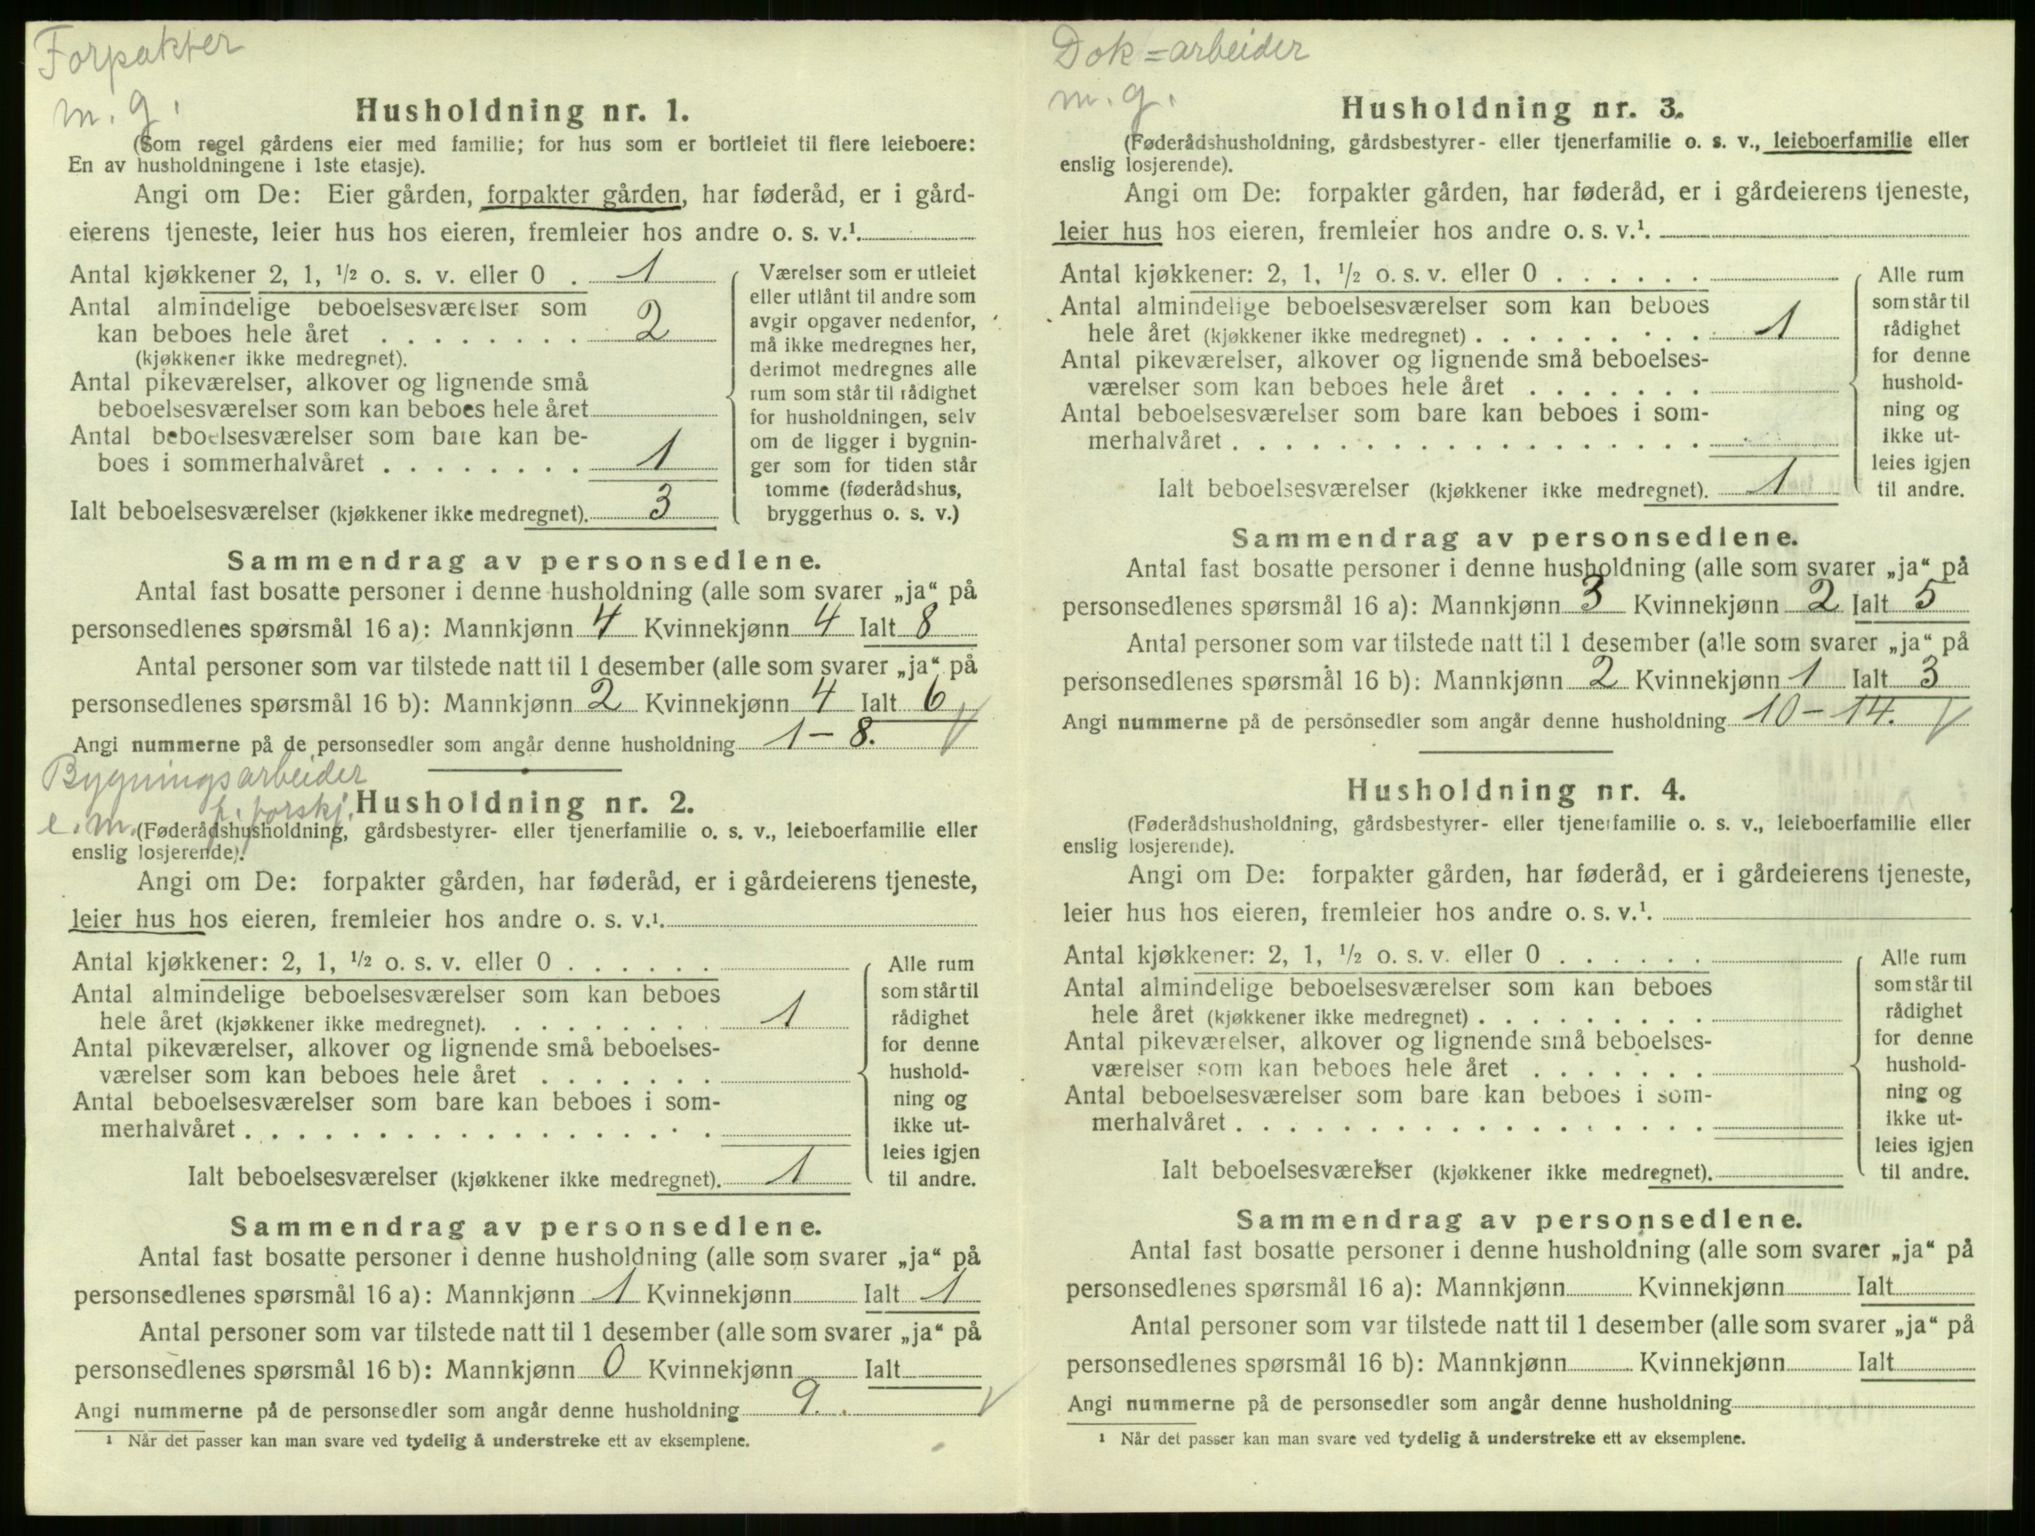 Forpakter
m. g.
Husholdning nr. 1.
(Som regel gårdens eier med familie; for hus som er bortleiet til flere leieboere:
En av husholdningene i 1ste etasje).
Angi om De: Eier gården, forpakter gården, har føderåd, er i gård-
eierens tjeneste, leier hus hos eieren, fremleier hos andre o. s. v.¹.
Antal kjøkkener 2, 1, ½ o. s. v. eller 0 . 1
Antal almindelige beboelsesværelser som
kan beboes hele året . . . . . . . . 2
(kjøkkener ikke medregnet).
Antal pikeværelser, alkover og lignende små
beboelsesværelser som kan beboes hele året
Antal beboelsesværelser som bare kan be-
boes i sommerhalvåret . . . . . . . . 1
Ialt beboelsesværelser (kjøkkener ikke medregnet). 3
Værelser som er utleiet
eller utlånt til andre som
avgir opgaver nedenfor,
må ikke medregnes her,
derimot medregnes alle
rum som står til rådighet
for husholdningen, selv
om de ligger i bygnin-
ger som for tiden står
tomme (føderådshus,
bryggerhus o. s. v.)
Sammendrag av personsedlene.
Antal fast bosatte personer i denne husholdning (alle som svarer „ja“ på
personsedlenes spørsmål 16 a): Mannkjønn 4 Kvinnekjønn 4 Ialt 8
Antal personer som var tilstede natt til 1 desember (alle som svarer „ja“ på
personsedlenes spørsmål 16 b): Mannkjønn 2 Kvinnekjønn 4 Ialt 6
Angi nummerne på de personsedler som angår denne husholdning 1 – 8.
Bygningsarbeider
e. m. f. forskj.
Husholdning nr. 2.
(Føderådshusholdning, gårdsbestyrer- eller tjenerfamilie o. s. v., leieboerfamilie eller
enslig losjerende).
Angi om De: forpakter gården, har føderåd, er i gårdeierens tjeneste,
leier hus hos eieren, fremleier hos andre o. s. v.¹.
Antal kjøkkener: 2, 1, ½ o. s. v. eller 0 . . . . . .
Antal almindelige beboelsesværelser som kan beboes
hele året (kjøkkener ikke medregnet). . . . . . . . . 1
Antal pikeværelser, alkover og lignende små beboelses-
værelser som kan beboes hele året . . . . . . .
Antal beboelsesværelser som bare kan beboes i som-
merhalvåret . . . . . . . . . . . . . . . . . .
Ialt beboelsesværelser (kjøkkener ikke medregnet). 1
Alle rum
som står til
rådighet
for denne
hushold-
ning og
ikke ut-
leies igjen
til andre.
Sammendrag av personsedlene.
Antal fast bosatte personer i denne husholdning (alle som svarer „ja“ på
personsedlenes spørsmål 16 a): Mannkjønn 1 Kvinnekjønn Ialt 1
Antal personer som var tilstede natt til 1 desember (alle som svarer „ja“ på
personsedlenes spørsmål 16 b): Mannkjønn 0 Kvinnekjønn Ialt
Angi nummerne på de personsedler som angår denne husholdning 9.
¹ Når det passer kan man svare ved tydelig å understreke ett av eksemplene.
Dok=arbeider
m. g.
Husholdning nr. 3.
(Føderådshusholdning, gårdsbestyrer- eller tjenerfamilie o. s. v., leieboerfamilie eller
enslig losjerende).
Angi om De: forpakter gården, har føderåd, er i gårdeierens tjeneste,
leier hus hos eieren, fremleier hos andre o. s. v.¹.
Antal kjøkkener: 2, 1, ½ o. s. v. eller 0 . . . . . .
Antal almindelige beboelsesværelser som kan beboes
hele året (kjøkkener ikke medregnet) . . . . . . . . . 1
Antal pikeværelser, alkover og lignende små beboelses-
værelser som kan beboes hele året . . . . . . .
Antal beboelsesværelser som bare kan beboes i som-
merhalvåret . . . . . . . . . . . . . . . . . .
Ialt beboelsesværelser (kjøkkener ikke medregnet). 1
Alle rum
som står til
rådighet
for denne
hushold-
ning og
ikke ut-
leies igjen
til andre.
Sammendrag av personsedlene.
Antal fast bosatte personer i denne husholdning (alle som svarer „ja“ på
personsedlenes spørsmål 16 a): Mannkjønn 3 Kvinnekjønn 2 Ialt 5
Antal personer som var tilstede natt til 1 desember (alle som svarer „ja“ på
personsedlenes spørsmål 16 b): Mannkjønn 2 Kvinnekjønn 1 Ialt 3
Angi nummerne på de personsedler som angår denne husholdning 10 – 14.
Husholdning nr. 4.
(Føderådshusholdning, gårdsbestyrer- eller tjenerfamilie o. s. v., leieboerfamilie eller
enslig losjerende).
Angi om De: forpakter gården, har føderåd, er i gårdeierens tjeneste,
leier hus hos eieren, fremleier hos andre o. s. v.¹.
Antal kjøkkener: 2, 1, ½ o. s. v. eller 0 . . . . . .
Antal almindelige beboelsesværelser som kan beboes
hele året (kjøkkener ikke medregnet) . . . . . . . . .
Antal pikeværelser, alkover og lignende små beboelses-
værelser som kan beboes hele året . . . . . . .
Antal beboelsesværelser som bare kan beboes i som-
merhalvåret . . . . . . . . . . . . . . . . . .
Ialt beboelsesværelser (kjøkkener ikke medregnet).
Alle rum
som står til
rådighet
for denne
hushold-
ning og
ikke ut-
leies igjen
til andre.
Sammendrag av personsedlene.
Antal fast bosatte personer i denne husholdning (alle som svarer „ja“ på
personsedlenes spørsmål 16 a): Mannkjønn Kvinnekjønn Ialt
Antal personer som var tilstede natt til 1 desember (alle som svarer „ja“ på
personsedlenes spørsmål 16 b): Mannkjønn Kvinnekjønn Ialt
Angi nummerne på de personsedler som angår denne husholdning
¹ Når det passer kan man svare ved tydelig å understreke ett av eksemplene.